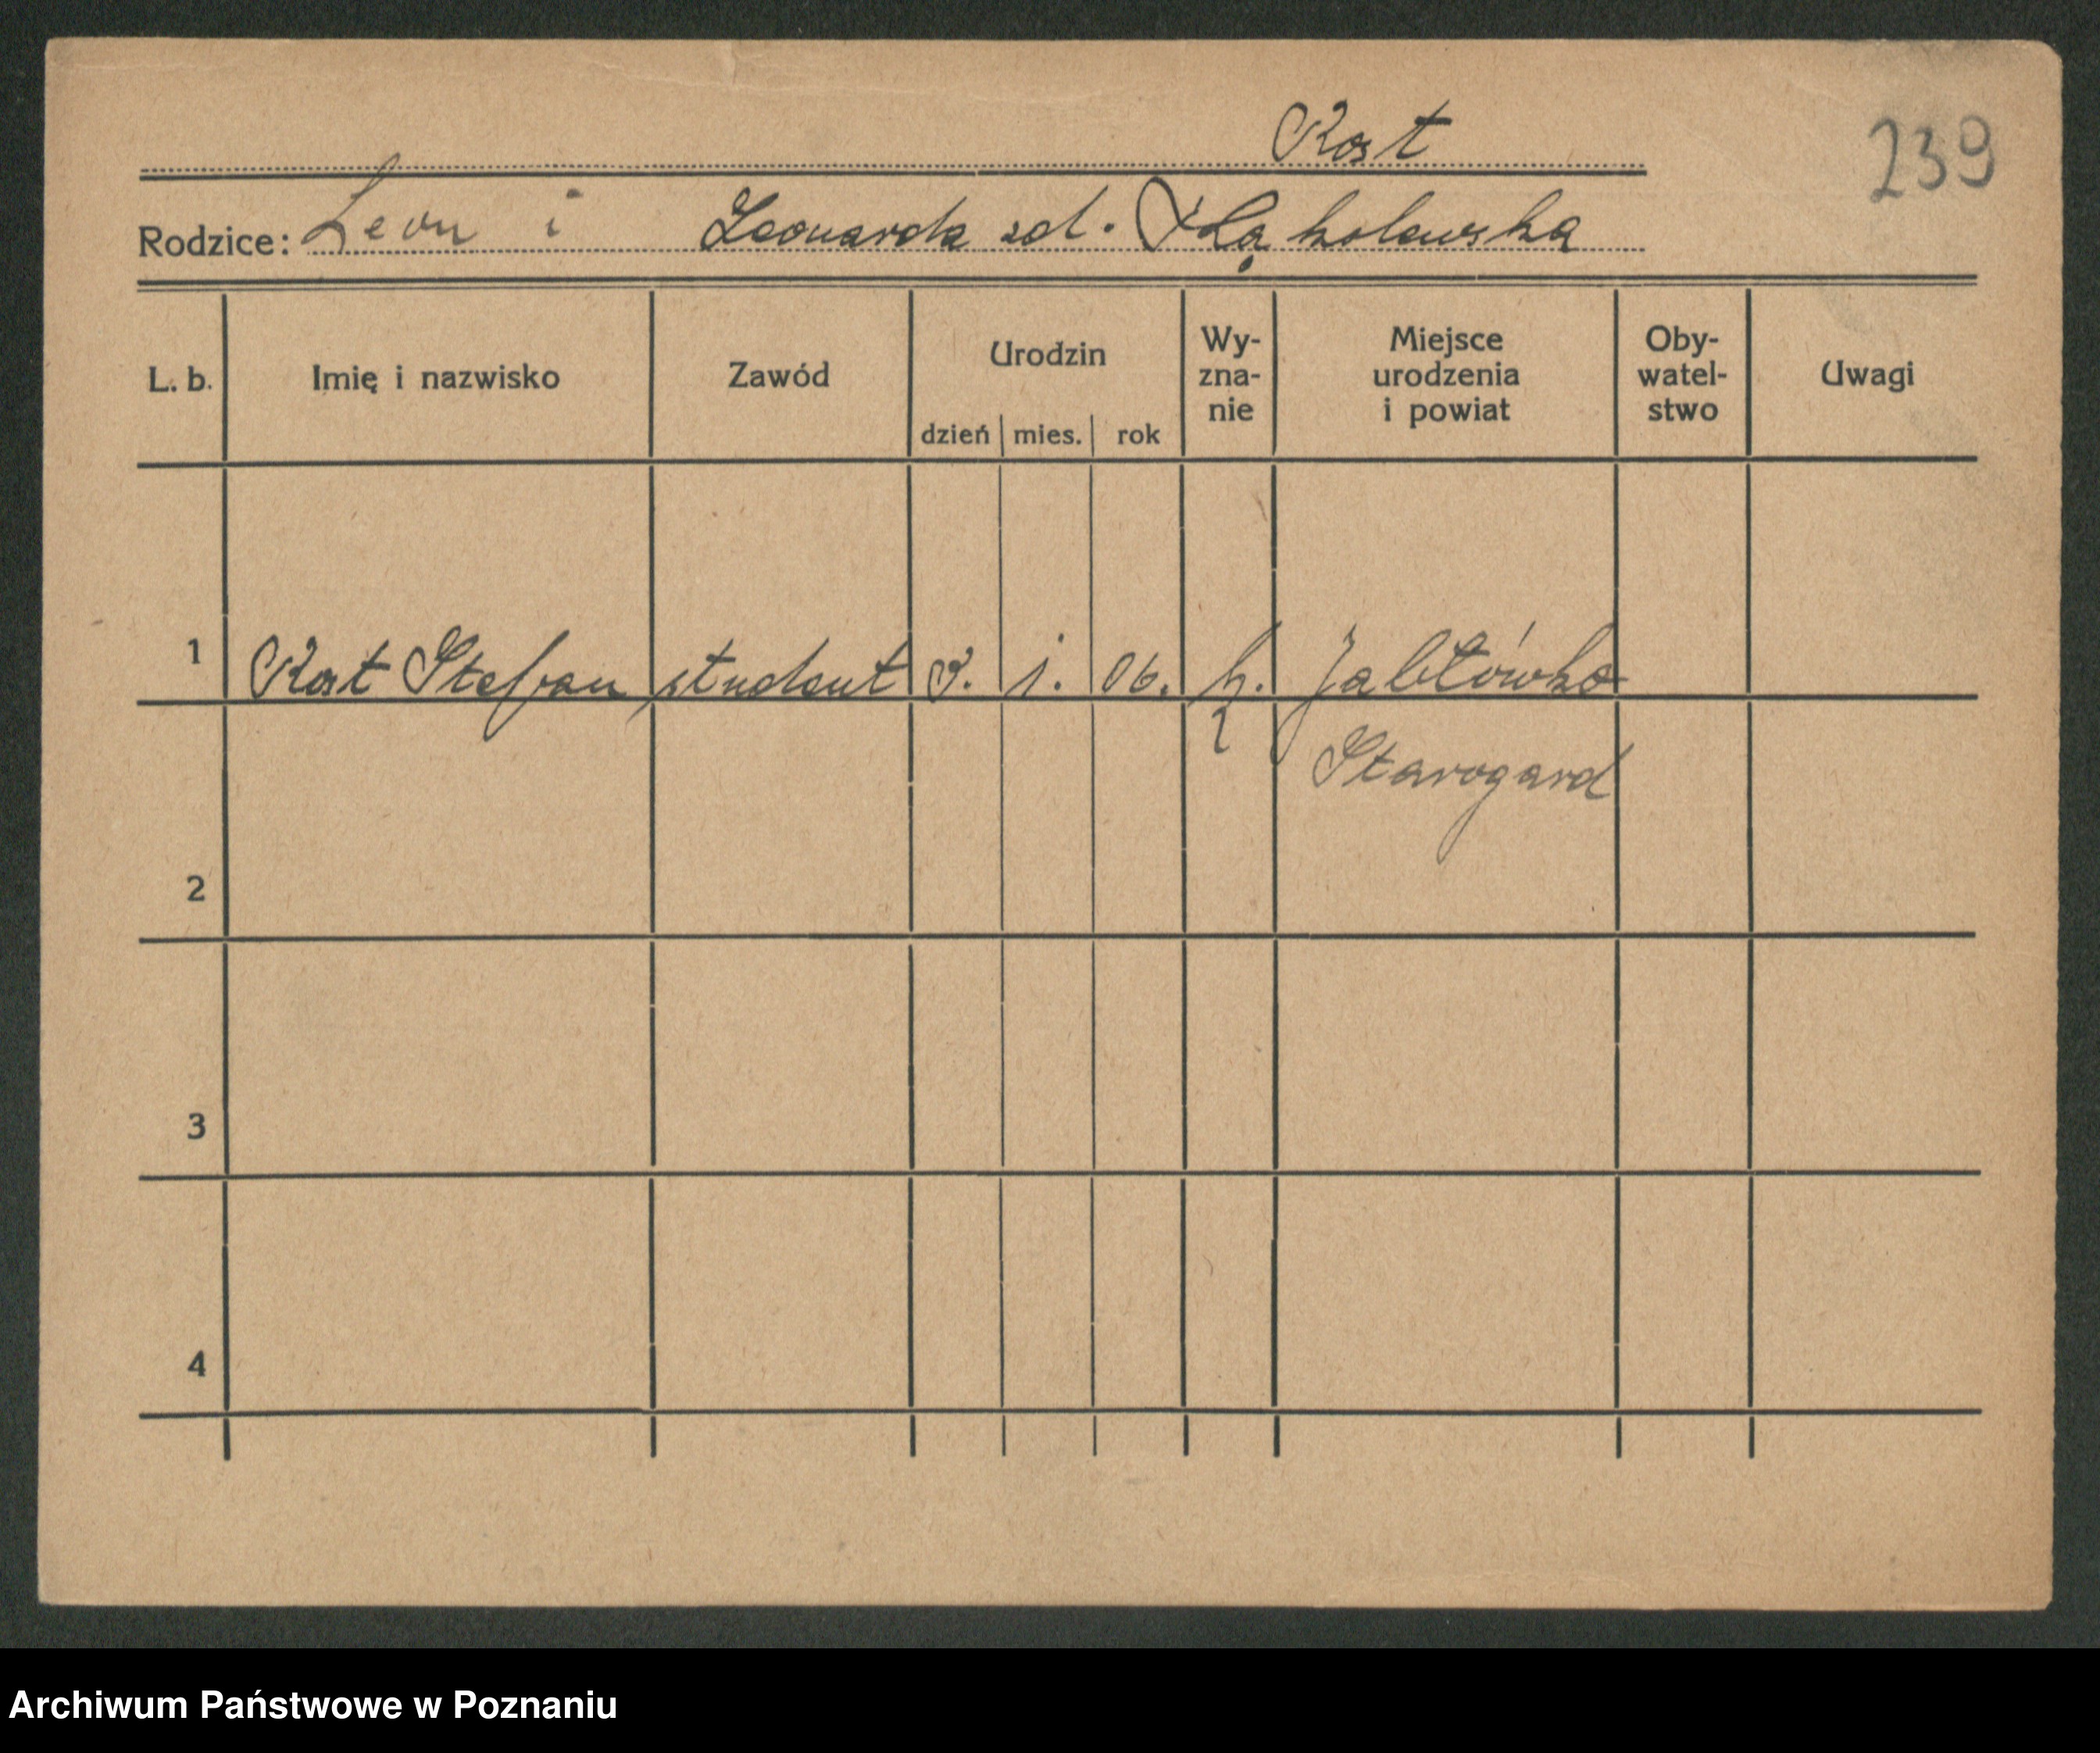 Rost
239
Rodzice: Leon i Leonarda
L. b. Imię i nazwisko Zawód Urodzin dzień mies. rok Wy-zna-nie Miejsce urodzenia i powiat Oby-watel-stwo Uwagi
1 Rost Stefan student 8. 1. 06. k. Jabłówko
Starogard
2
3
4
Archiwum Państwowe w Poznaniu